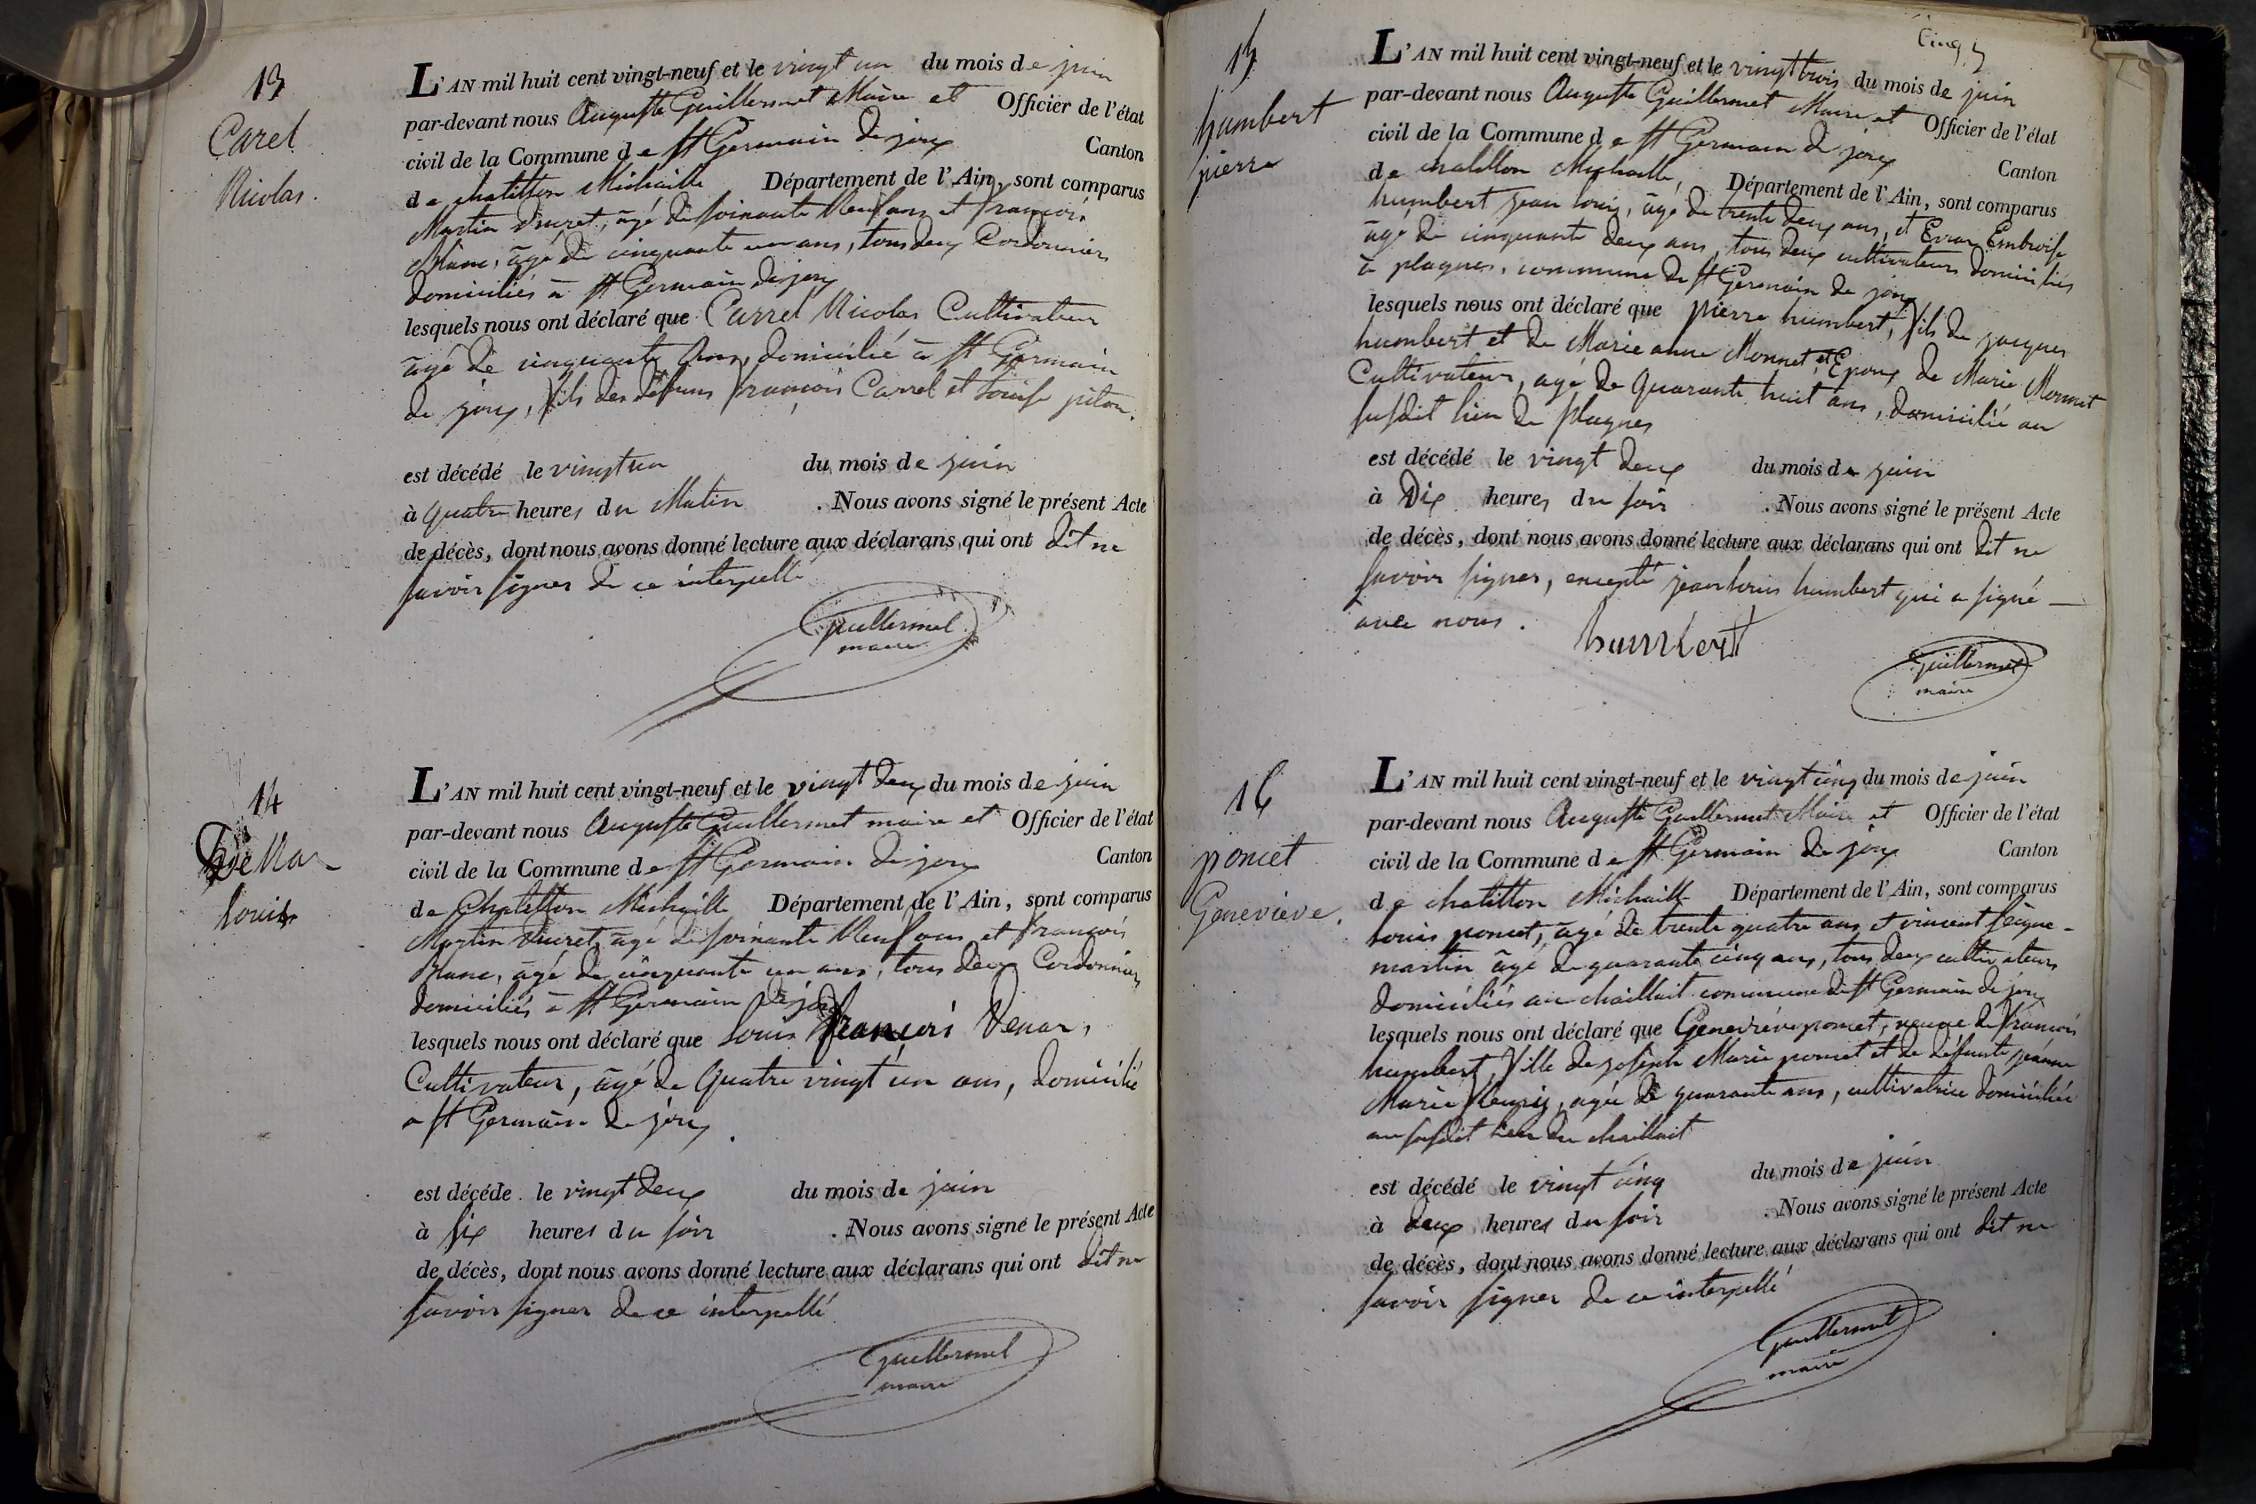 13
Carel
Nicolas.
L'AN mil huit cent vingt-neuf et le vingt un du mois de juin
par-devant nous Auguste Guillermet Maire et Officier de l'état
civil de la Commune de St Germain de joux Canton
de chatillon Michaille Département de l'Ain, sont comparus
Martin Ducret, âgé de soixante Neuf ans et françois
Blanc, âgé de cinquante un ans, tous deux Cordonniers
domiciliés à St Germain de joux
lesquels nous ont déclaré que Carrel Nicolas Cultivateur
âgé de cinquante Ans, domicilié à St Germain
de joux, fils des défuns françois Carrel et Louise piton.
est décédé le vingt un du mois de juin
à quatre heures du Matin . Nous avons signé le présent Acte
de décès, dont nous avons donné lecture aux déclarans qui ont dit ne
savoir signer de ce interpellé
Guillermet
maire
14
Louis
L'AN mil huit cent vingt-neuf et le vingt deux du mois de juin
par-devant nous Auguste Guillermet maire et Officier de l'état
civil de la Commune de St Germain de joux Canton
de Chatillon Michaille Département de l'Ain, sont comparus
Martin Ducret, âgé de soixante Neuf ans et françois
Blanc, âgé de cinquante un ans, tous deux Cordonniers
domiciliés à St Germain de joux
lesquels nous ont déclaré que Louis françois Venar,
Cultivateur, âgé de Quatre vingt un ans, domicilié
a St Germain de joux.
est décédé le vingt deux du mois de juin
à six heures du soir . Nous avons signé le présent Acte
de décès, dont nous avons donné lecture aux déclarans qui ont dit ne
savoir signer de ce interpellé
Guillermet
maire
Cinq 5
15
humbert
pierre
L'AN mil huit cent vingt-neuf et le vingt trois du mois de juin
par-devant nous Auguste Guillermet Maire et Officier de l'état
civil de la Commune de St Germain de joux Canton
de chatillon Michaille, Département de l'Ain, sont comparus
humbert jean louis, âgé de trente deux ans, et Evrar Embroise
âgé de cinquante deux ans, tous deux cultivateurs domiciliés
à plagnes, commune de St Germain de joux
lesquels nous ont déclaré que pierre humbert, fils de jacques
humbert et de Marie anne Monnet, et Epoux de Marie Monnet
Cultivateur, agé de Quarante huit ans, domicilié au
susdit lieu de plagnes
est décédé le vingt deux du mois de juin
à Dix heures du soir . Nous avons signé le présent Acte
de décès, dont nous avons donné lecture aux déclarans qui ont dit ne
savoir signer, excepté jean louis humbert qui a signé
avec nous.
humbert
Guillermet
maire
16
poncet
Genevieve.
L'AN mil huit cent vingt-neuf et le vingt cinq du mois de juin
par-devant nous Auguste Guillermet Maire et Officier de l'état
civil de la Commune de St Germain de joux Canton
de chatillon Michaille Département de l'Ain, sont comparus
Louis poncet, âgé de trente quatre ans et vincent Seigne-
martin âgé de quarante cinq ans, tous deux cultivateurs
domiciliés au chaillait commune de St Germain de joux
lesquels nous ont déclaré que Geneviève poncet, veuve de françois
humbert, fille de joseph Marie poncet et de défunte jeanne
Marie fleury, agée de quarante ans, cultivatrice domiciliée
au susdit lieu du chaillait
est décédé le vingt cinq du mois de juin
à deux heures du soir . Nous avons signé le présent Acte
de décès, dont nous avons donné lecture aux déclarans qui ont dit ne
savoir signer de ce interpellé
Guillermet
maire